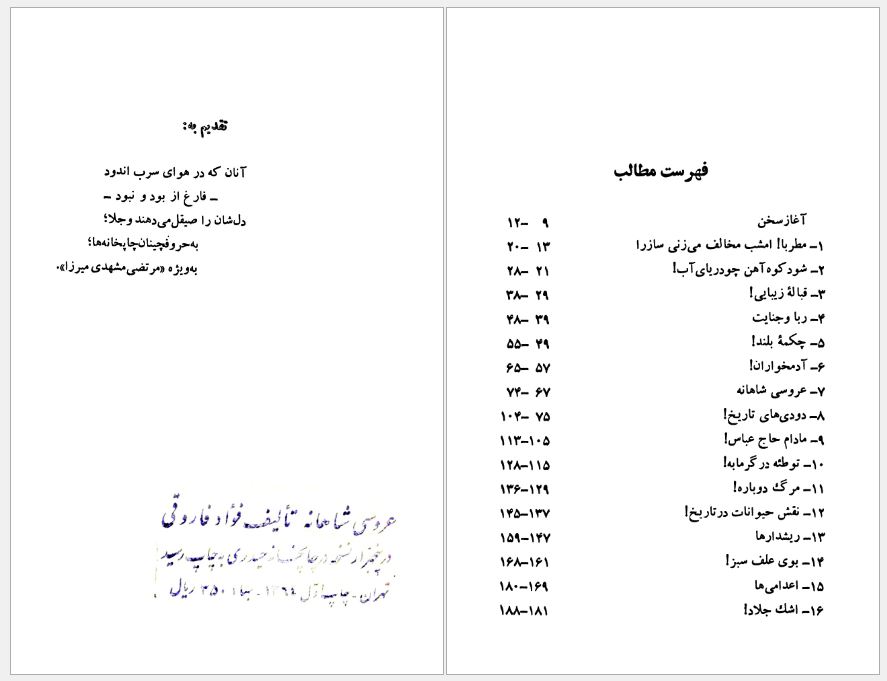 فهرست مطالب
آغاز سخن ۹ –۱۲
۱ـ مطربا! امشب مخالف می‌زنی ساز را ۱۳ –۲۰
۲ـ شود کوه آهن چو دریای آب! ۲۱ –۲۸
۳ـ قبالهٔ زیبایی! ۲۹ –۳۸
۴ـ ربا و جنایت ۳۹ –۴۸
۵ـ چکمهٔ بلند! ۴۹ –۵۵
۶ـ آدمخواران! ۵۷ –۶۵
۷ـ عروسی شاهانه ۶۷ –۷۴
۸ـ دودی‌های تاریخ! ۷۵ –۱۰۴
۹ـ مادام حاج عباس! ۱۰۵–۱۱۳
۱۰ـ توطئه در گرمابه! ۱۱۵–۱۲۸
۱۱ـ مرگ دوباره! ۱۲۹–۱۳۶
۱۲ـ نقش حیوانات در تاریخ! ۱۳۷–۱۴۵
۱۳ـ ریشدارها ۱۴۷–۱۵۹
۱۴ـ بوی علف سبز! ۱۶۱–۱۶۸
۱۵ـ اعدامی‌ها ۱۶۹–۱۸۰
۱۶ـ اشک جلاد! ۱۸۱–۱۸۸
تقدیم به:
آنان که در هوای سرب اندود
ـ فارغ از بود و نبود ـ
دل‌شان را صیقل می‌دهند و جلا؛
به حروفچینان چاپخانه‌ها؛
به‌ویژه «مرتضی مشهدی میرزا».
عروسی شاهانه تألیف فؤاد فاروقی
در پنجهزار نسخه در چاپخانه حیدری به چاپ رسید
تهران - چاپ اول ۱۳۶۴ - بها ۳۵۰ ریال